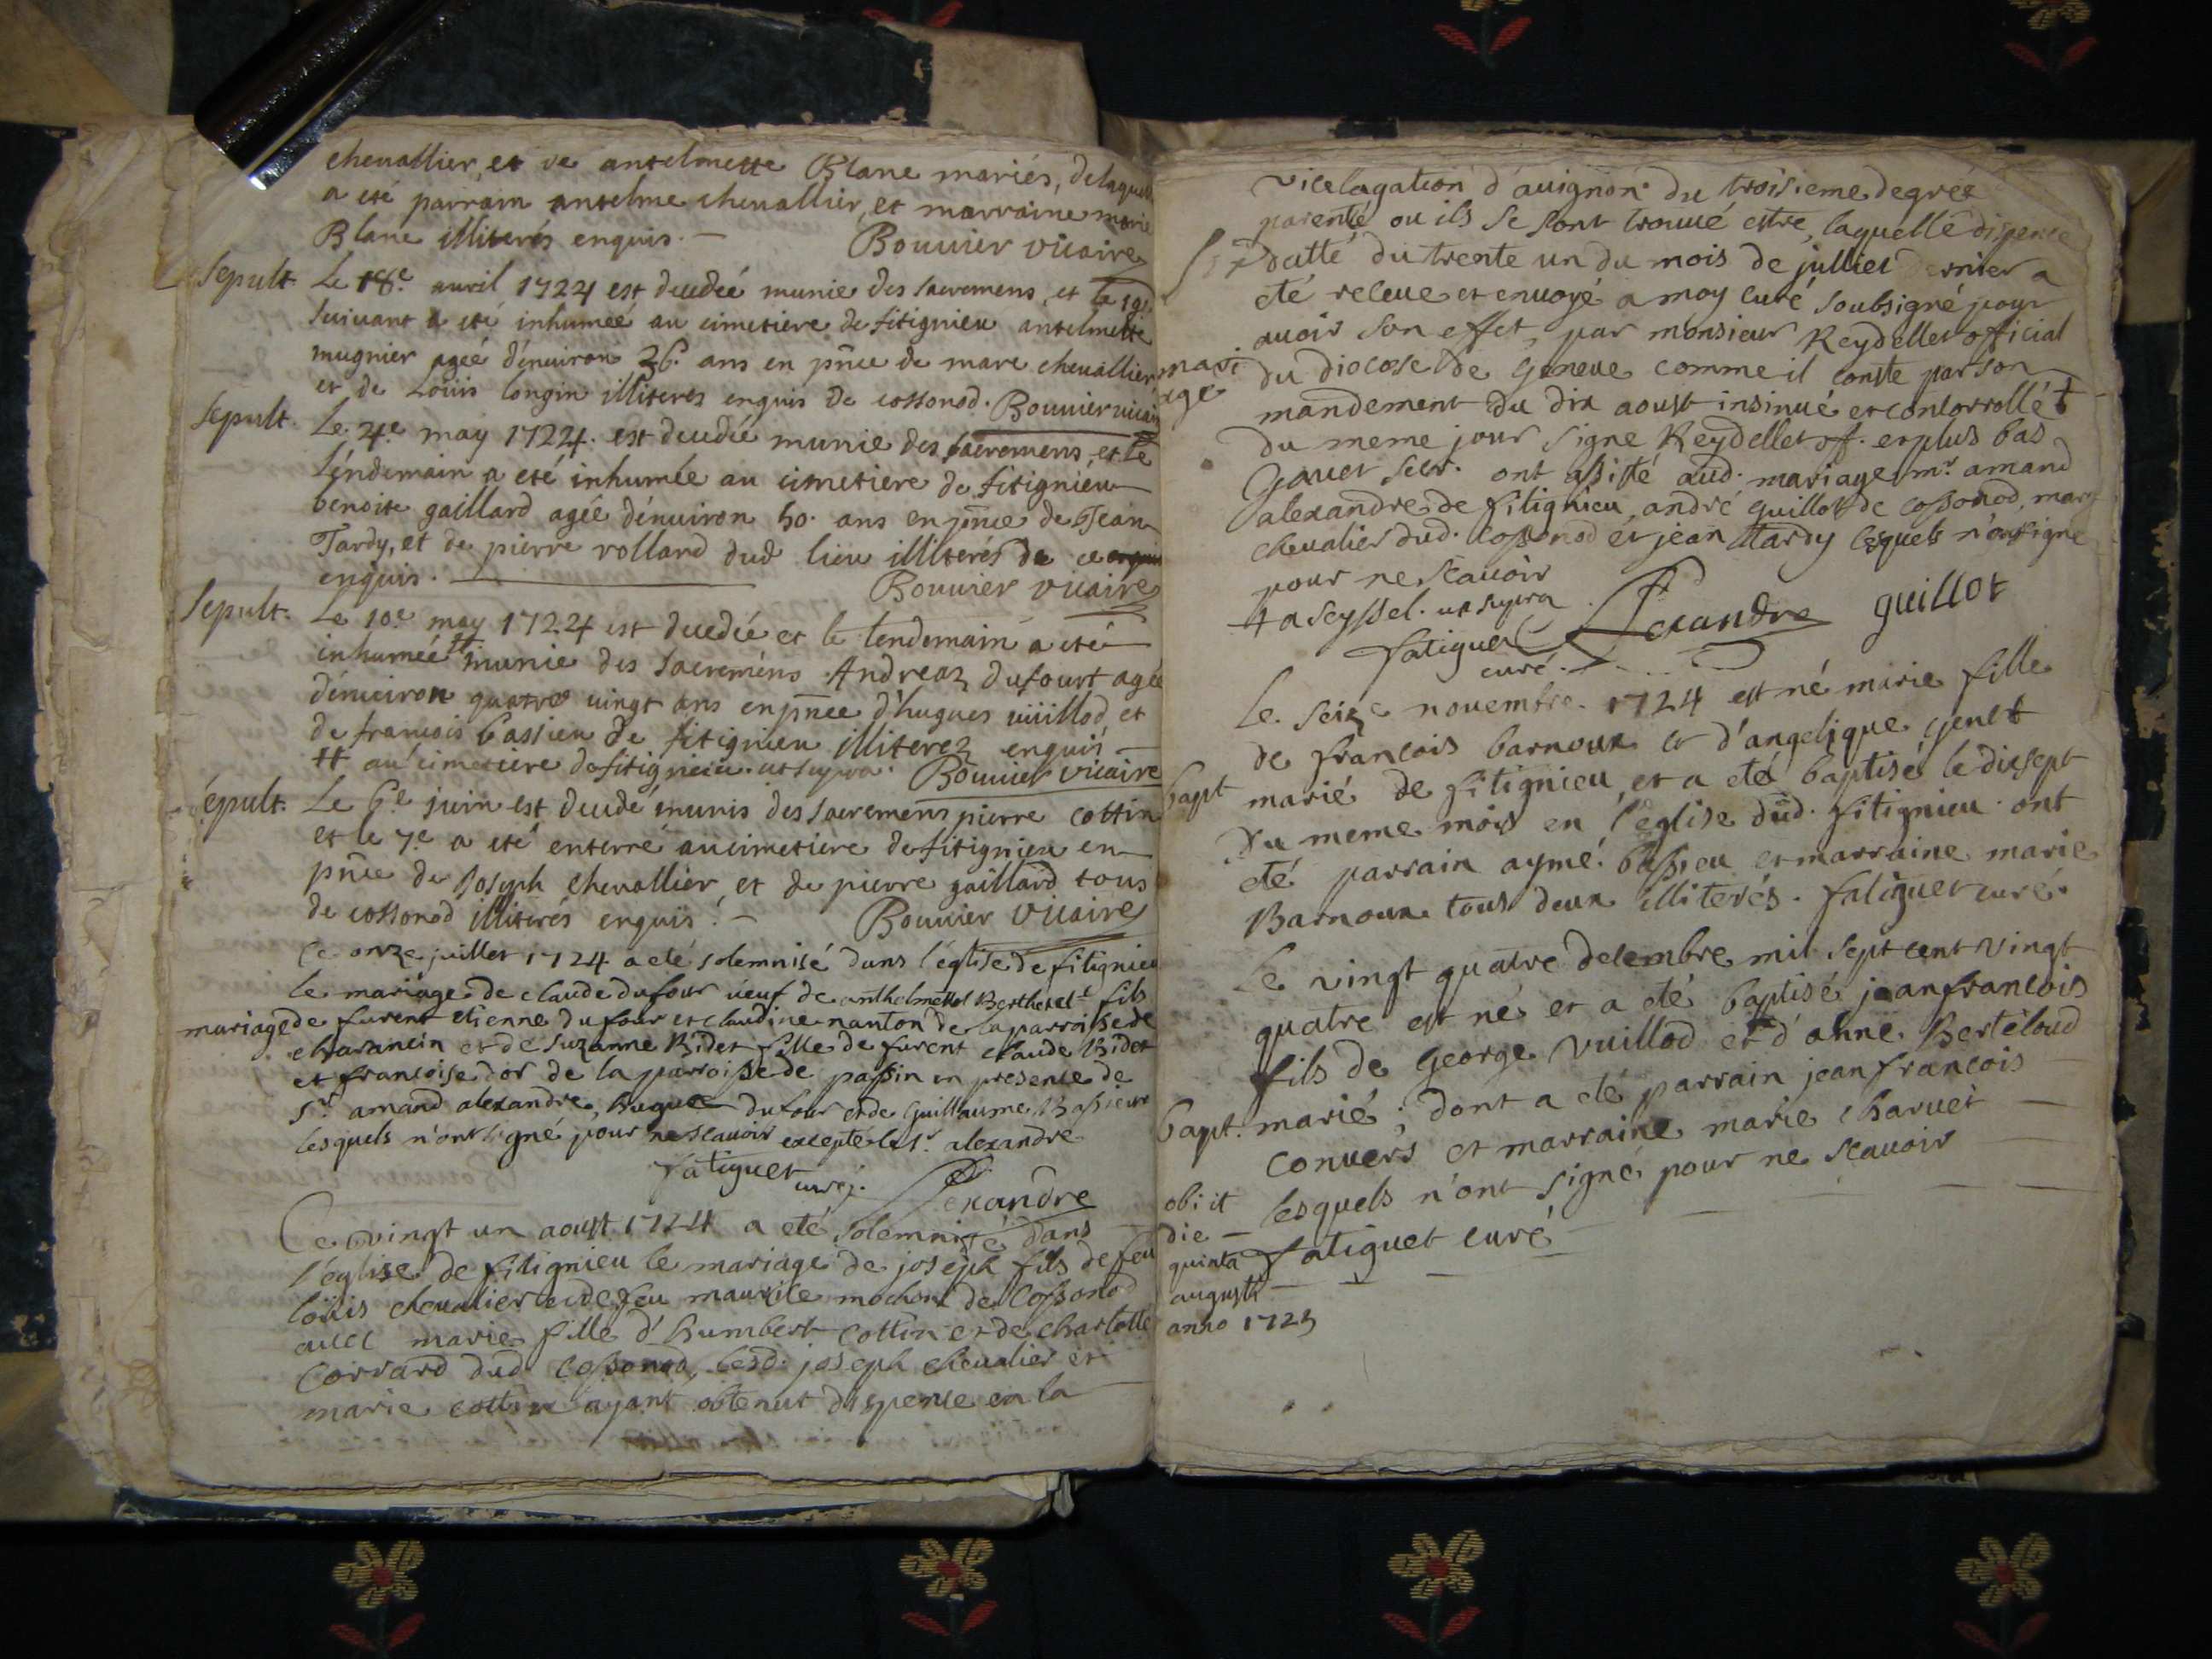 chevallier, et de antelmette Blanc mariés, delaquelle
a eté parrain antelme chevallier, et marraine marie
Blanc illiterés enquis. — Bouvier vicaire
Sepult. Le 18.e avril 1724 est decedée munie des sacremens, et le 19.
suivant a eté inhumée au cimetiere de fitignieu antelmette
mugnier agée d'environ 36. ans en pnce de marc chevallier
et de Loüis longin illiteres enquis de cossonod. Bouvier vicaire
Sepult. Le 4.e may 1724. est decedée munie des sacremens, et le
lendemain a eté inhumée au cimetiere de fitignieu
benoite gaillard agée d'environ 50. ans en pnce de Jean
Tardy, et de pierre rolland dud lieu illiterés de ce enquis
enquis. — Bouvier vicaire
Sepult. Le 10.e may 1724 est decedée et le lendemain a eté
inhumée # munie des sacremens Andreaz dufourt agée
d'environ quatre vingt ans en pnce d'hugues vuillod et
de francois bassieu de fitignieu illiterez enquis —
# au cimetiere de fitignieu. ut supra. Bouvier vicaire
sépult. Le 6.e juin est decedé munis des sacremens pierre cottin
et le 7.e a eté enterré au cimetiere de fitignieu en
pnce de Joseph chevallier et de pierre gaillard tous
de cossonod illiterés enquis. — Bouvier vicaire
Ce onze juillet 1724 a eté solemnisé dans l'église de fitignieu
le mariage de claude dufour veuf de anthelmette Berthet et fils
mariage de furent etienne dufour et claudine nanton de la parroisse de
charancin et de suzanne Bidet fille de furent claude Bidet
et francoise dor de la parroisse de passin en presence de
sr. amand alexandre, hugue dufour et de guillaume Bassieux
lesquels n'ont signé pour ne scavoir excepté le sr. alexandre
fatiguet curé. Alexandre
Ce vingt un aoust 1724 a eté solemnisé dans
l'église de fitignieu le mariage de joseph fils de feu
loüis chevalier et de feu maurile mochon de Cossonod
avec marie fille d'humbert cottin et de charlotte
Corrard dud. Cossonod, lesd. joseph chevalier et
marie cottin ayant obtenut dispense en la
vicelagation d'avignon du troisieme degrez
parenté ou ils se sont trouvé estre, laquelle dispence
datté du trente un du mois de jullies dernier a
eté releue et envoyé a moy curé soubsigné pour
avoir son effet, par monsieur Reydellet official
mariage du diocese de geneve comme il conste par son
mandement du dix aoust insinué et contorrollé †
du meme jour signe Reydellet off. et plus bas
Gavet secr. ont assisté aud. mariage mr. amand
alexandre de fitignieu, andré guillot de cossonod, marc
chevalier dud. cossonod et jean tardy lesquels n'ont signe
pour ne scavoir
† a seyssel. ut supra
fatiguet curé. Alexandre guillot
Le seize novembre 1724 est né marie fille
de francois barnoux et d'angelique genet
bapt marié de fitignieu, et a eté baptisé le dixsept
du meme mois en l'église dud. fitignieu. ont
eté parrain aymé bassieu et marraine marie
Barnoux tous deux illiterés. fatiguet curé.
Le vingt quatre decembre mil sept cent vingt
quatre est né et a eté baptisé jean francois
fils de George vuillod et d'anne Berteloud
bapt. marié; dont a eté parrain jean francois
convers et marraine marie charvet
lesquels n'ont signé pour ne scavoir
fatiguet curé
obiit
die
quinta
augusti
anno 1725